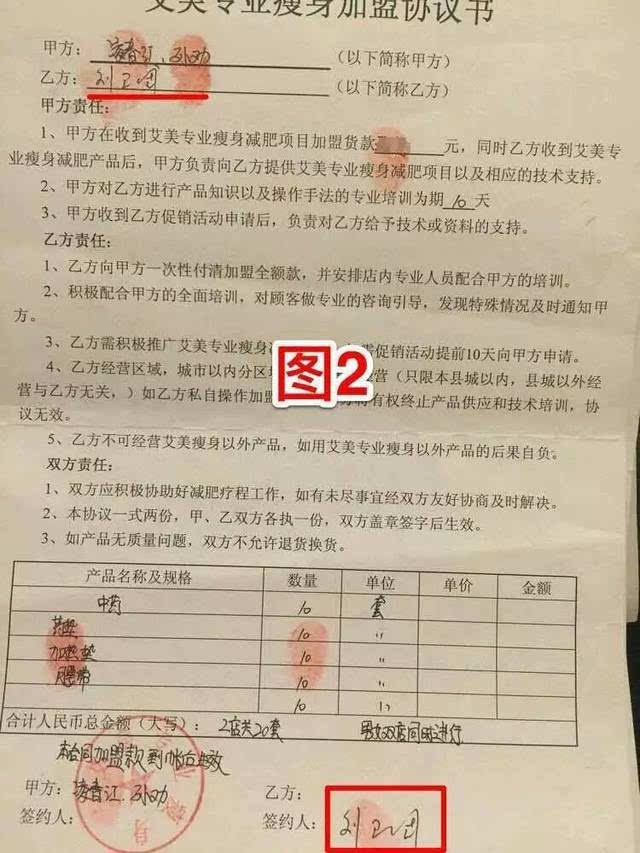 艾美专业瘦身加盟协议书
甲方：凌春江、孙功（以下简称甲方）
乙方：刘卫国（以下简称乙方）
甲方责任：
1、甲方在收到艾美专业瘦身减肥项目加盟货款 元，同时乙方收到艾美专
业瘦身减肥产品后，甲方负责向乙方提供艾美专业瘦身减肥项目以及相应的技术支持。
2、甲方对乙方进行产品知识以及操作手法的专业培训为期10天
3、甲方收到乙方促销活动申请后，负责对乙方给予技术或资料的支持。
乙方责任：
1、乙方向甲方一次性付清加盟全额款，并安排店内专业人员配合甲方的培训。
2、积极配合甲方的全面培训，对顾客做专业的咨询引导，发现特殊情况及时通知甲
方。
3、乙方需积极推广艾美专业瘦身 促销活动提前10天向甲方申请。
图2
4、乙方经营区域，城市以内分区 （只限本县城以内，县城以外经
营与乙方无关，）如乙方私自操作加盟 有权终止产品供应和技术培训，协
议无效。
5、乙方不可经营艾美瘦身以外产品，如用艾美专业瘦身以外产品的后果自负。
双方责任：
1、双方应积极协助好减肥疗程工作，如有未尽事宜经双方友好协商及时解决。
2、本协议一式两份，甲、乙双方各执一份，双方盖章签字后生效。
3、如产品无质量问题，双方不允许退货换货。
产品名称及规格 数量 单位 单价 金额
中药 10 套
药垫 10 〃
加热垫 10 〃
腰带 10 〃
10 〃
合计人民币总金额（大写）：2店共20套 男女双店同时进行
本合同加盟款到帐后生效
甲方：凌春江、孙功 乙方：
签约人： 签约人：刘卫国